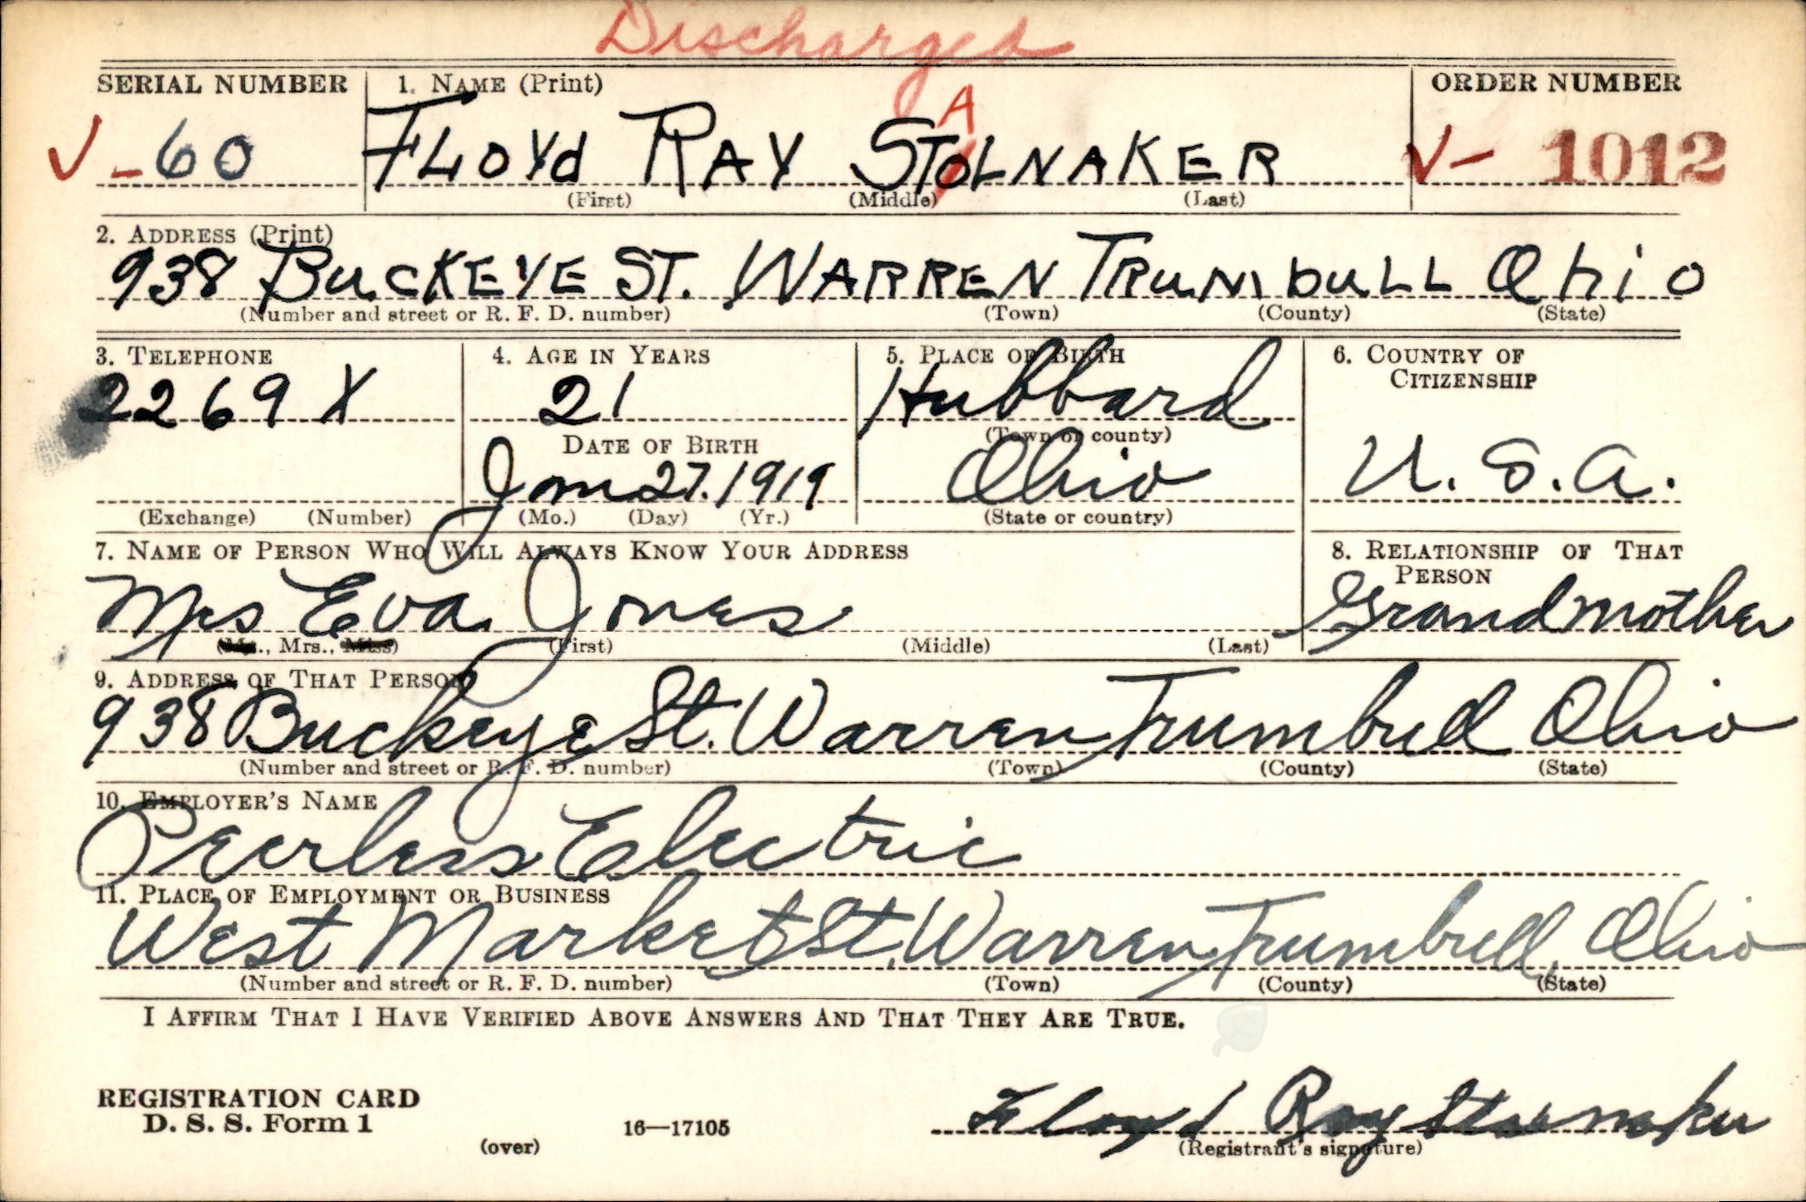 Discharged
SERIAL NUMBER 1. NAME (Print) ORDER NUMBER
A
V-60 FLOYd RAY STOLNAKER V- 1012
(First) (Middle) (Last)
2. ADDRESS (Print)
938 BUCKEYE ST. WARREN TRUMbULL Ohio
(Number and street or R. F. D. number) (Town) (County) (State)
3. TELEPHONE 4. AGE IN YEARS 5. PLACE OF BIRTH 6. COUNTRY OF
CITIZENSHIP
2269 X 21 Hubbard
(Town or county)
DATE OF BIRTH
Jan 27. 1919 Ohio U. S. A.
(Exchange) (Number) (Mo.) (Day) (Yr.) (State or country)
7. NAME OF PERSON WHO WILL ALWAYS KNOW YOUR ADDRESS 8. RELATIONSHIP OF THAT
PERSON
Mrs Eva Jones Grandmother
(Mr., Mrs., Miss) (First) (Middle) (Last)
9. ADDRESS OF THAT PERSON
938 Buckeye St. Warren Trumbull Ohio
(Number and street or R. F. D. number) (Town) (County) (State)
10. EMPLOYER'S NAME
Peerless Electric
11. PLACE OF EMPLOYMENT OR BUSINESS
West Market St. Warren Trumbull, Ohio
(Number and street or R. F. D. number) (Town) (County) (State)
I AFFIRM THAT I HAVE VERIFIED ABOVE ANSWERS AND THAT THEY ARE TRUE.
REGISTRATION CARD
D. S. S. Form 1
(over) 16—17105 Floyd Ray Stalnaker
(Registrant's signature)